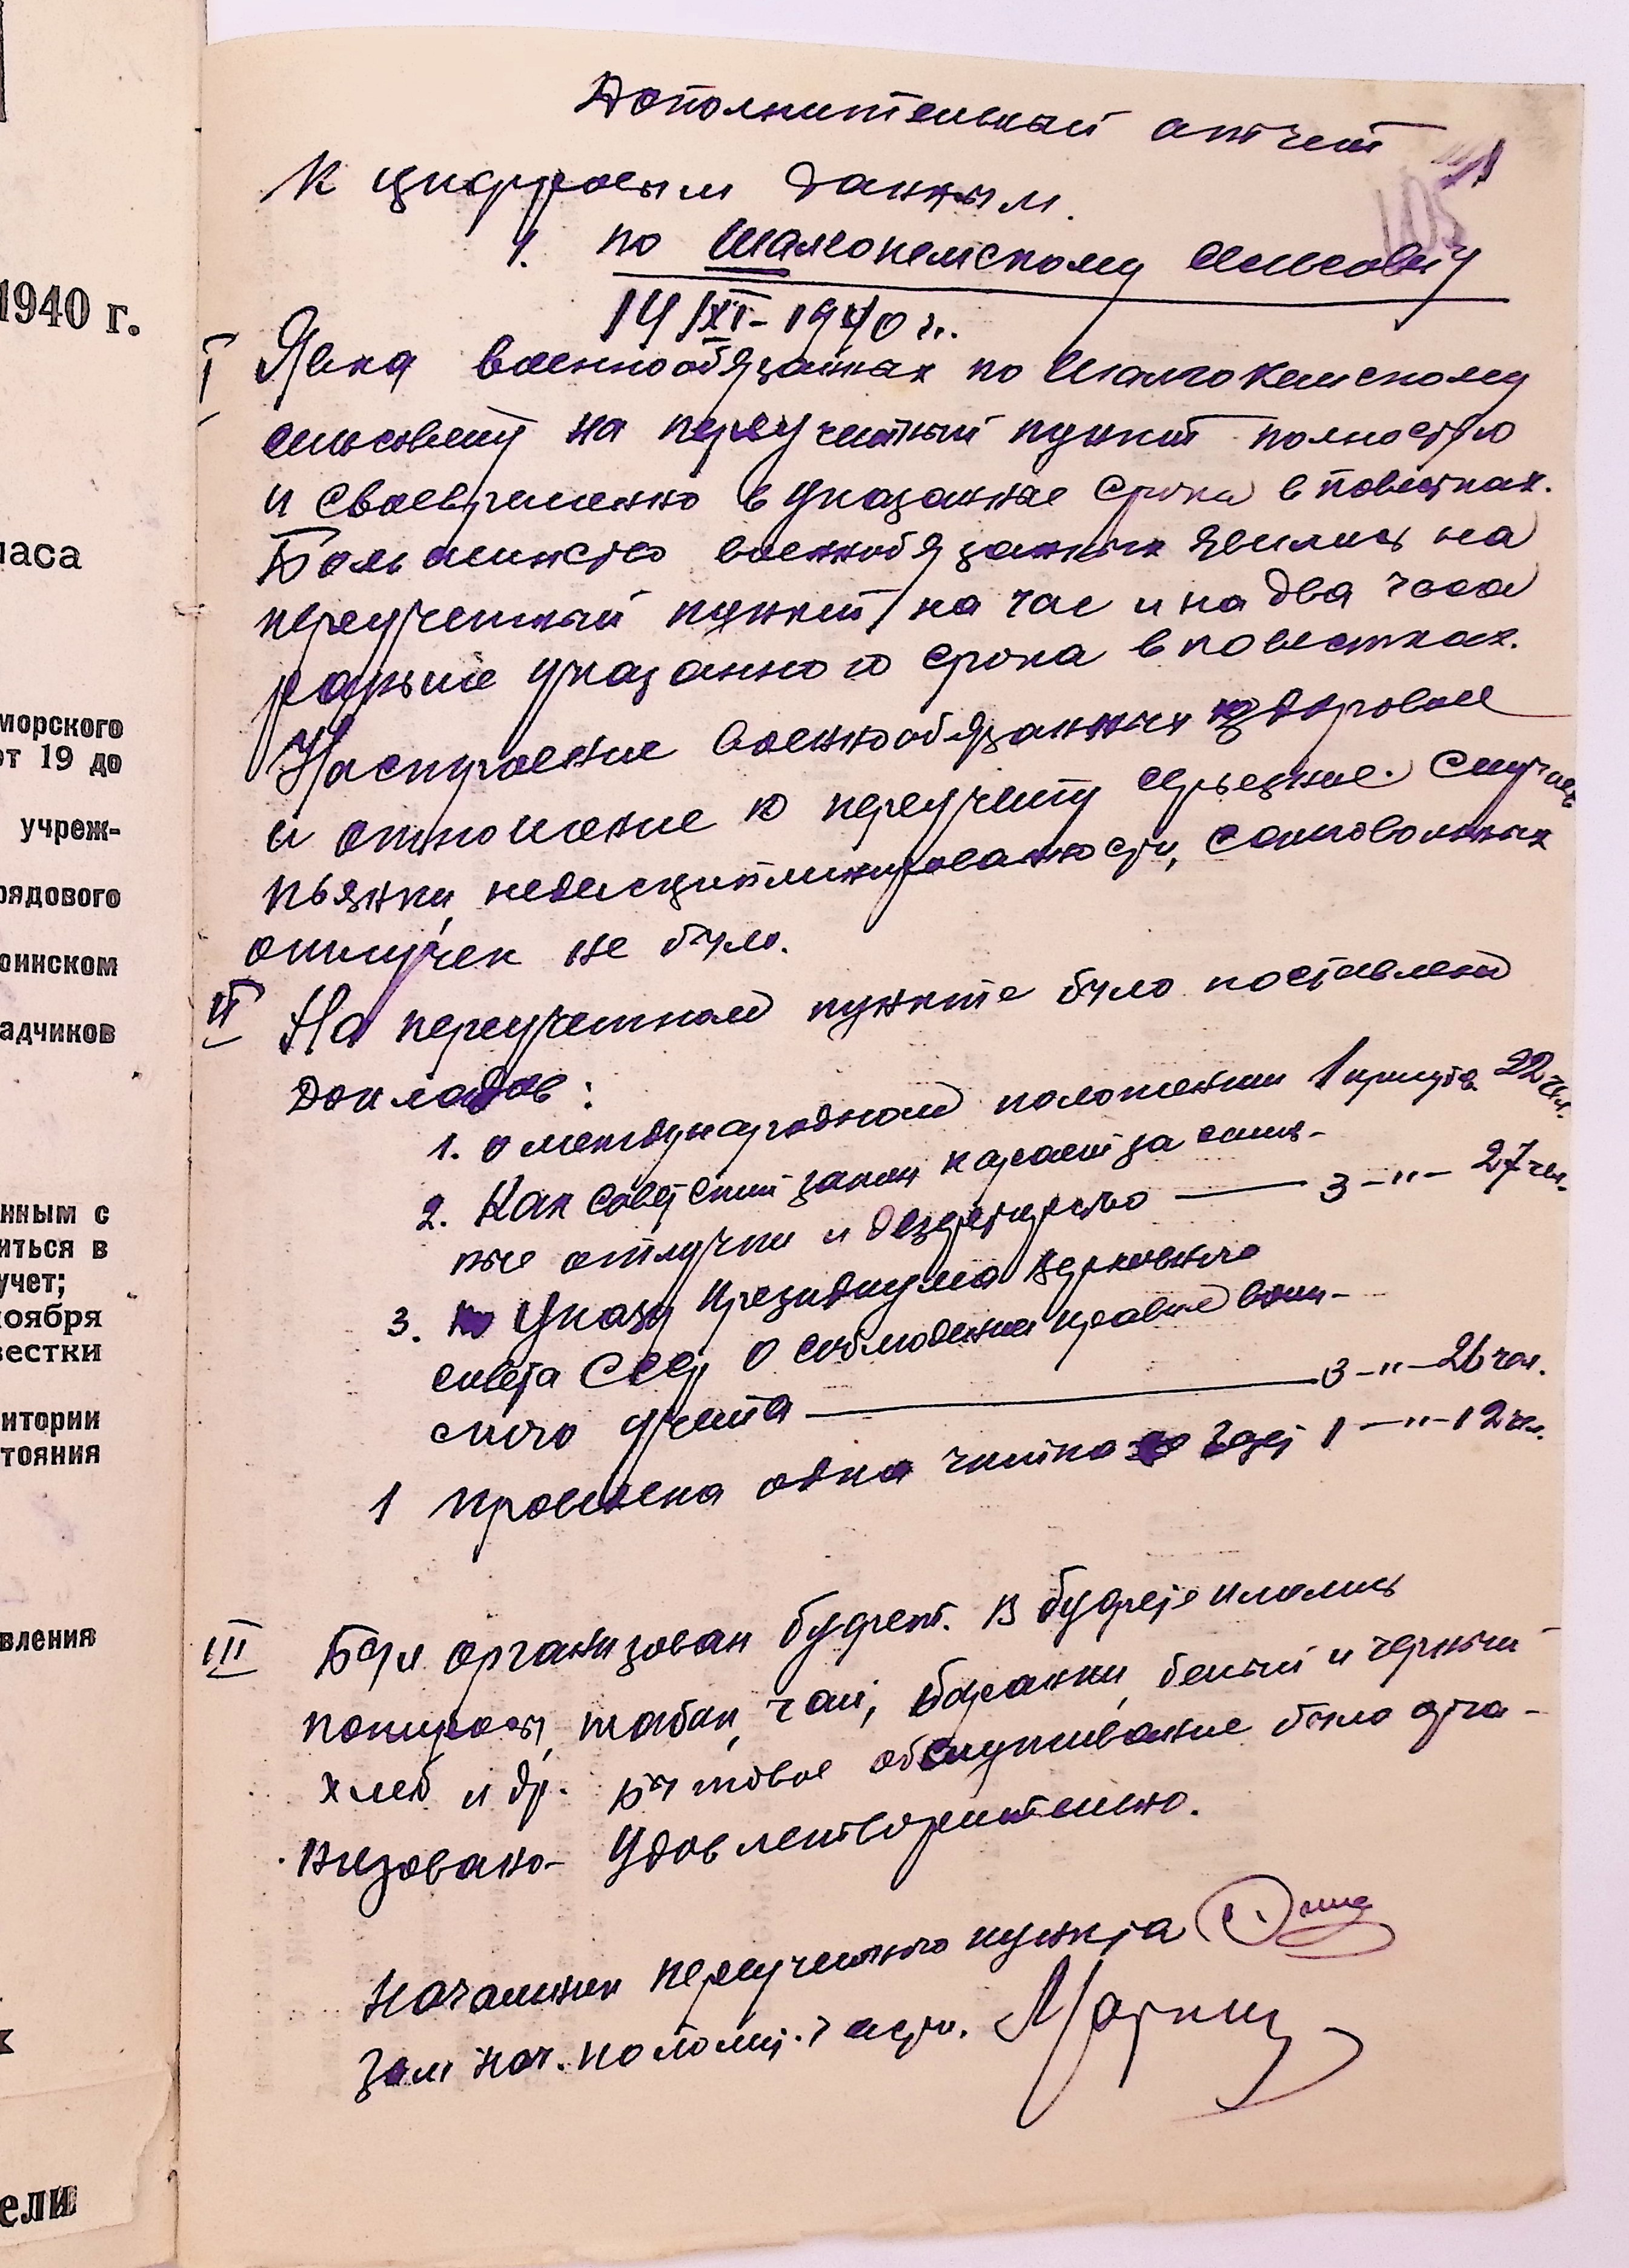 1940 г.
часа
морского
от 19 до
учреж-
рядового
воинском
адчиков
нным с
иться в
учет;
ноября
вестки
итории
тояния
вления
ели
Дополнительный атчет
К цифровым данным.
105
1. по Шалгокемскому сельсовету
14/XI-1940 г.
I Явка военнообязанных по Шалгокемскому
сельсовету на переучетный пункт полностью
и своевременно в указанные сроки в повестках.
Большинство военнообязанных явились на
переучетный пункт на час и на два часа
раньше указанного срока в повестках.
Настроение военнообязанных здоровое
и отношение к переучету серьезное. Случаев
пьянки, недисциплинированности, самовольных
отлучек не было.
II На переучетном пункте было поставлено
докладов:
1. о международном положении 1 присутв. 22 чел.
2. Как советский закон карает за самов-
ные отлучки и дезертирство — 3 -"- 27 чел.
3. Указу Президиума Верховного
совета СССР о соблюдении правил воин-
ского учета — 3 -"- 26 чел.
1 Проведена одна читка газет 1 -"- 12 чел.
III Был организован буфет. В буфете имелись
папиросы, табак, чай, баранки, белый и черный
хлеб и др. Бытовое обслуживание было орга-
низовано- удовлетворительно.
Начальник переучетного пункта
Зам нач. по полит. части.